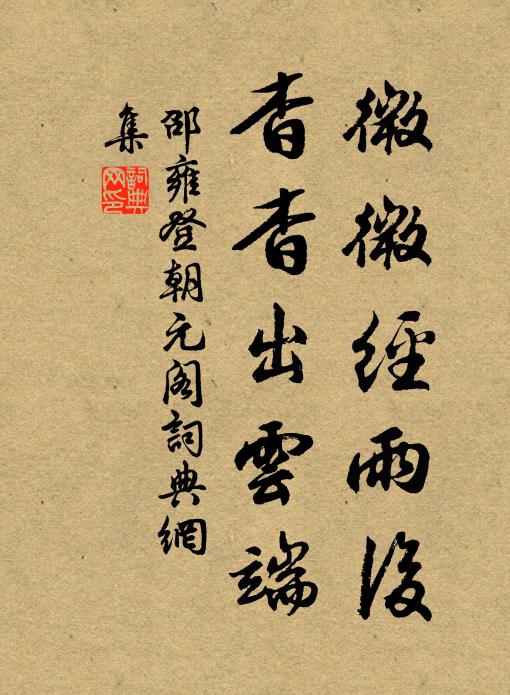 微微經雨後
杳杳出雲端
邵雍登朝元閣詞典網
集
詞典
网印